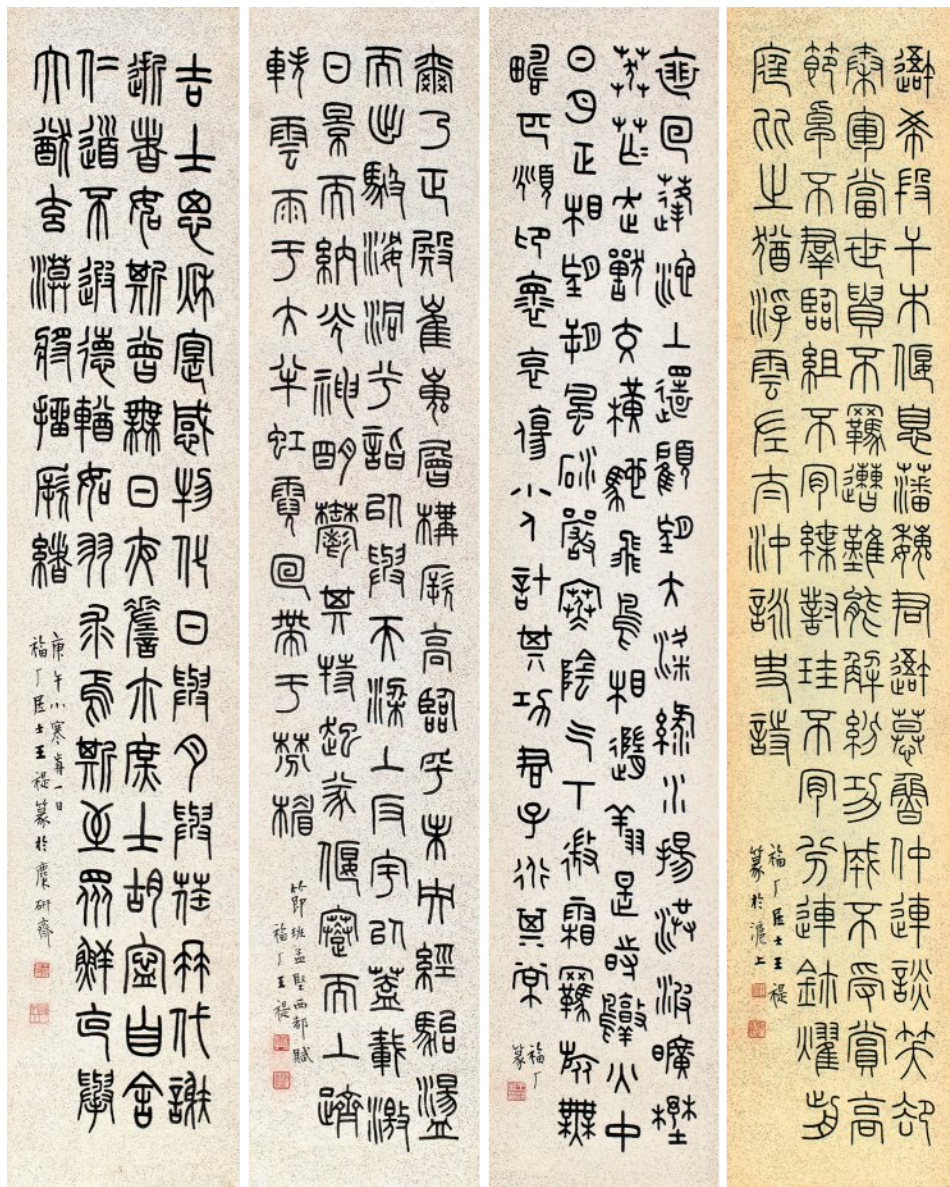 吾希段干木偃息藩魏君吾慕魯仲連談笑卻
秦軍當世貴不羈遭難能解紛功成不受賞高
節卓不羣臨組不肯緤對珪不肯分連鉩燿前
庭比之猶浮雲左太沖詠史詩
福厂居士王禔
篆於滬上
裴回蓬池上還顧望大梁綠水揚洪波曠野
莽芒走獸交橫馳飛鳥相隨翔是時鶉火中
日月正相望朔風厲嚴寒陰气下微霜羈旅無
疇匹頫卬褱哀傷小人計其功君子道其常
福厂
篆
爾乃正殿崔嵬層構厥高臨乎未央經駘盪
而出馺娑洞兮詣以與天梁上反宇以蓋戴激
日景而納光神明鬱其特起遂偃蹇而上躋
軼雲雨于大半虹霓回帶于棼楣
節班孟堅西都賦
福厂王禔
吉士思秋寔感物化日與月與荏苒代謝
逝者如斯曾無日夜嗟爾庶士胡寧自舍
仁道不遐德輶如羽求焉斯至眾鮮克舉
大猷玄漠將抽厥緒
庚午小寒前一日
福厂居士王禔篆於麋研齋